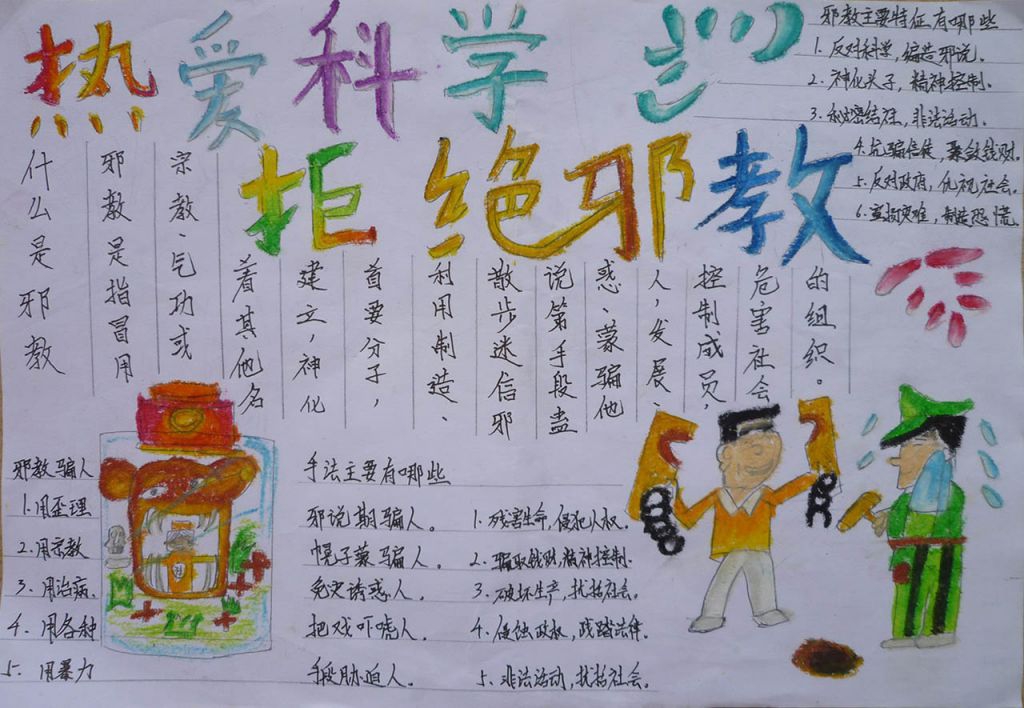 热爱科学
拒绝邪教
邪教主要特征有哪些
1. 反对科学，编造邪说。
2. 神化头子，精神控制。
3. 秘密结社，非法活动。
4. 坑骗信徒，聚敛钱财。
5. 反对政府，仇视社会。
6. 宣扬灾难，制造恐慌。
什么是邪教
邪教是指冒用
宗教、气功或
着其他名
建立，神化
首要分子，
利用制造、
散步迷信邪
说第手段蛊
惑、蒙骗他
人，发展、
控制成员，
危害社会
的组织。
邪教骗人手法主要有哪些
1. 用歪理邪说期骗人。
2. 用宗教幌子蒙骗人。
3. 用治病免史诱惑人。
4. 用各种把戏吓唬人。
5. 用暴力手段胁迫人。
1. 残害生命，侵犯人权。
2. 骗取钱财，精神控制。
3. 破坏生产，扰乱社会。
4. 侵蚀政权，践踏法律。
5. 非法活动，扰乱社会。